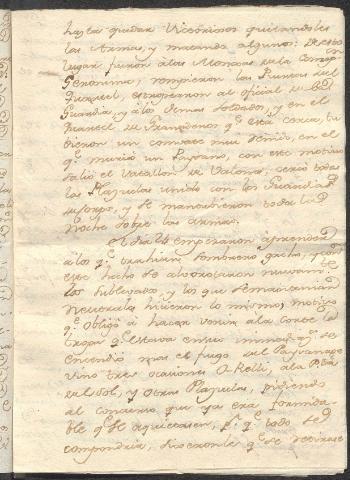 hasta quedar Victoriosos quitandoles
las Armas, y matando alguno: De este
lugar fueron à las Monxas de la Concepcion
Geronima, rompieron las Puertas del
Quartel, estropearon al oficial de
Guardia, y à los demas Soldados, y en el
Quartel de Franceses qe. està cerca, tu
bieron un combate mui reñido, en el
qe. murió un Paysano, con este motivo
salió el Batallon de Valona, cerró todas
las Plazuelas unido con los Guardias de
Corps, y se mantubieron toda la
noche sobre las Armas.
El dia 24 empezaron à prender
à los qe. trahian sombrero gacho, y con
este hecho se alborotaron nuevamte.
los sublevados, y los que se mantenian
Neutrales hicieron lo mismo; motivo
qe. obligó à hacer venir à la Corte la
tropa qe. estava en sus inmediaciones, se
encendió mas el fuego del Paysanage
vino tres ocasiones à la Pta.
del Sol, y otras Plazuelas, pidiendo
al concurso que ya era formida
ble qe. se aquietasen, pr. qe. todo se
compondria, dixeronle qe. se retirase